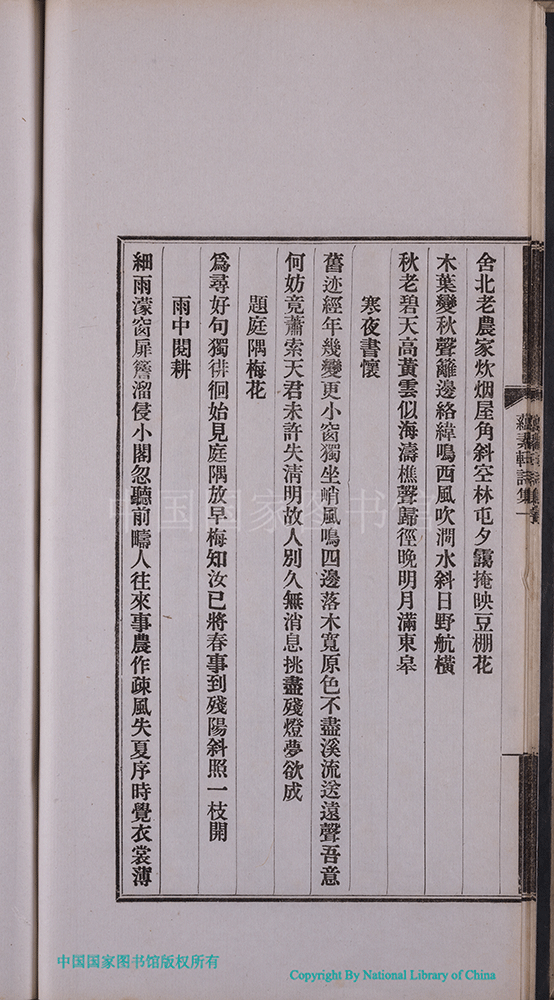 舍北老農家炊烟屋角斜空林屯夕靄掩映豆棚花
木葉變秋聲籬邊絡緯鳴西風吹澗水斜日野航橫
秋老碧天高黃雲似海濤樵聲歸徑晚明月滿東皋
寒夜書懷
舊迹經年幾變更小窗獨坐峭風鳴四邊落木寬原色不盡溪流送遠聲吾意
何妨竟蕭索天君未許失清明故人別久無消息挑盡殘燈夢欲成
題庭隅梅花
爲尋好句獨徘徊始見庭隅放早梅知汝已將春事到殘陽斜照一枝開
雨中閱耕
細雨濛窗扉簷溜侵小閣忽聽前疇人往來事農作疎風失夏序時覺衣裳薄
軒詩集一
中国国家图书馆
中国国家图书馆版权所有
Copyright By National Library of China